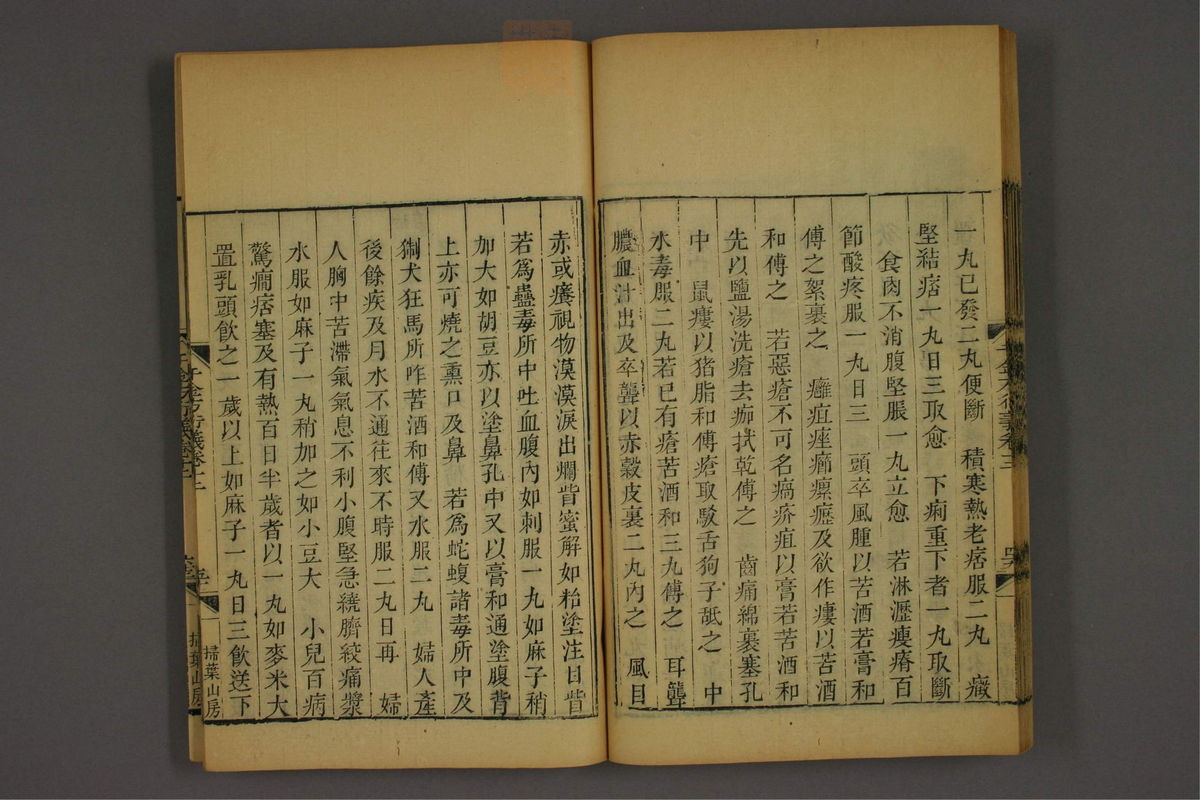 一丸已發二丸便斷　積寒熱老痞服二丸　癥
堅結痞一丸日三取愈　下痢重下者一丸取斷
食肉不消腹堅脹一丸立愈　若淋瀝瘦瘠百
節酸疼服一丸日三　頭卒風腫以苦酒若膏和
傅之絮裹之　癰疽痤癤瘰癧及欲作瘻以苦酒
和傅之　若惡瘡不可名瘑疥疽以膏若苦酒和
先以鹽湯洗瘡去痂拭乾傅之　齒痛綿裹塞孔
中　鼠瘻以猪脂和傅瘡取駁舌狗子舐之　中
水毒服二丸若已有瘡苦酒和三丸傅之　耳聾
膿血汁出及卒聾以赤穀皮裹二丸內之　風目
赤或癢視物漠漠淚出爛眥蜜解如粭塗注目眥
若爲蠱毒所中吐血腹內如刺服一丸如麻子稍
加大如胡豆亦以塗鼻孔中又以膏和通塗腹背
上亦可燒之熏口及鼻　若爲蛇蝮諸毒所中及
猘犬狂馬所咋苦酒和傅又水服二丸　婦人產
後餘疾及月水不通往來不時服二丸日再　婦
人胸中苦滯氣氣息不利小腹堅急繞臍絞痛漿
水服如麻子一丸稍加之如小豆大　小兒百病
驚癇痞塞及有熱百日半歲者以一丸如麥米大
置乳頭飲之一歲以上如麻子一丸日三飲送下
千金方衍義卷十二
掃葉山房
掃葉山房